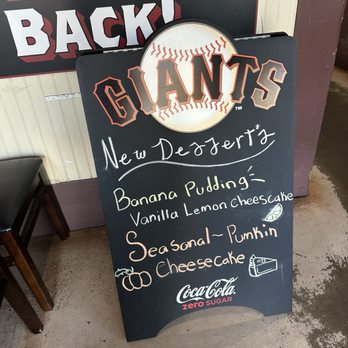 BACK!
GIANTS
TM
New Dessert's
Banana Pudding
Vanilla Lemon Cheescake
Seasonal~ Pumkin
Cheesecake
Coca-Cola
zero SUGAR